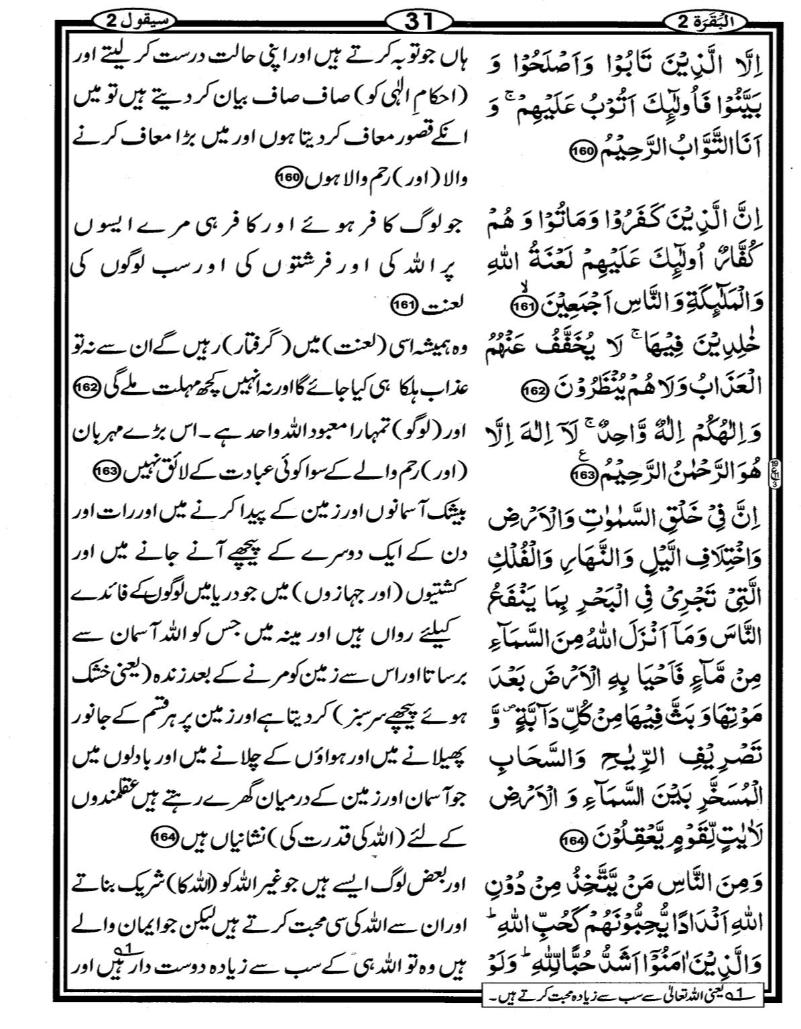 البقرة 2
31
سيقول 2
اِلَّا الَّذِيْنَ تَابُوْا وَاَصْلَحُوْا وَ
بَيَّنُوْا فَاُولٰٓئِكَ اَتُوْبُ عَلَيْهِمْ ۚ وَ
اَنَا التَّوَّابُ الرَّحِيْمُ 160
اِنَّ الَّذِيْنَ كَفَرُوْا وَمَاتُوْا وَهُمْ
كُفَّارٌ اُولٰٓئِكَ عَلَيْهِمْ لَعْنَةُ اللهِ
وَالْمَلٰٓئِكَةِ وَالنَّاسِ اَجْمَعِيْنَ ۙ 161
خٰلِدِيْنَ فِيْهَا ۚ لَا يُخَفَّفُ عَنْهُمُ
الْعَذَابُ وَلَا هُمْ يُنْظَرُوْنَ 162
وَاِلٰهُكُمْ اِلٰهٌ وَّاحِدٌ ۚ لَآ اِلٰهَ اِلَّا
هُوَ الرَّحْمٰنُ الرَّحِيْمُ ع 163
اِنَّ فِيْ خَلْقِ السَّمٰوٰتِ وَالْاَرْضِ
وَاخْتِلَافِ الَّيْلِ وَالنَّهَارِ وَالْفُلْكِ
الَّتِيْ تَجْرِيْ فِي الْبَحْرِ بِمَا يَنْفَعُ
النَّاسَ وَمَآ اَنْزَلَ اللهُ مِنَ السَّمَآءِ
مِنْ مَّآءٍ فَاَحْيَا بِهِ الْاَرْضَ بَعْدَ
مَوْتِهَا وَبَثَّ فِيْهَا مِنْ كُلِّ دَآبَّةٍ ۪ وَّ
تَصْرِيْفِ الرِّيٰحِ وَالسَّحَابِ
الْمُسَخَّرِ بَيْنَ السَّمَآءِ وَ الْاَرْضِ
لَاٰيٰتٍ لِّقَوْمٍ يَّعْقِلُوْنَ 164
وَمِنَ النَّاسِ مَنْ يَّتَّخِذُ مِنْ دُوْنِ
اللهِ اَنْدَادًا يُّحِبُّوْنَهُمْ كَحُبِّ اللهِ ؕ
وَالَّذِيْنَ اٰمَنُوْٓا اَشَدُّ حُبًّا لِّلّٰهِ ؕ وَلَوْ
ہاں جو توبہ کرتے ہیں اور اپنی حالت درست کر لیتے اور
(احکام الٰہی کو) صاف صاف بیان کر دیتے ہیں تو میں
انکے قصور معاف کر دیتا ہوں اور میں بڑا معاف کرنے
والا (اور) رحم والا ہوں 160
جو لوگ کافر ہوئے اور کافر ہی مرے ایسوں
پر اللہ کی اور فرشتوں کی اور سب لوگوں کی
لعنت 161
وہ ہمیشہ اسی (لعنت) میں (گرفتار) رہیں گے ان سے نہ تو
عذاب ہلکا ہی کیا جائے گا اور نہ انہیں کچھ مہلت ملے گی 162
اور (لوگو) تمہارا معبود اللہ واحد ہے ۔ اس بڑے مہربان
(اور) رحم والے کے سوا کوئی عبادت کے لائق نہیں 163
بیشک آسمانوں اور زمین کے پیدا کرنے میں اور رات اور
دن کے ایک دوسرے کے پیچھے آنے جانے میں اور
کشتیوں (اور جہازوں) میں جو دریا میں لوگوں کے فائدے
کیلئے رواں ہیں اور مینہ میں جس کو اللہ آسمان سے
برساتا اور اس سے زمین کو مرنے کے بعد زندہ (یعنی خشک
ہوئے پیچھے سرسبز) کر دیتا ہے اور زمین پر ہر قسم کے جانور
پھیلانے میں اور ہواؤں کے چلانے میں اور بادلوں میں
جو آسمان اور زمین کے درمیان گھرے رہتے ہیں عقلمندوں
کے لئے (اللہ کی قدرت کی) نشانیاں ہیں 164
اور بعض لوگ ایسے ہیں جو غیر اللہ کو (اللہ کا) شریک بناتے
اور ان سے اللہ کی سی محبت کرتے ہیں لیکن جو ایمان والے
ہیں وہ تو اللہ ہی کے سب سے زیادہ دوست دار ہیں 1 اور
1 یعنی اللہ تعالیٰ سے سب سے زیادہ محبت کرتے ہیں ۔